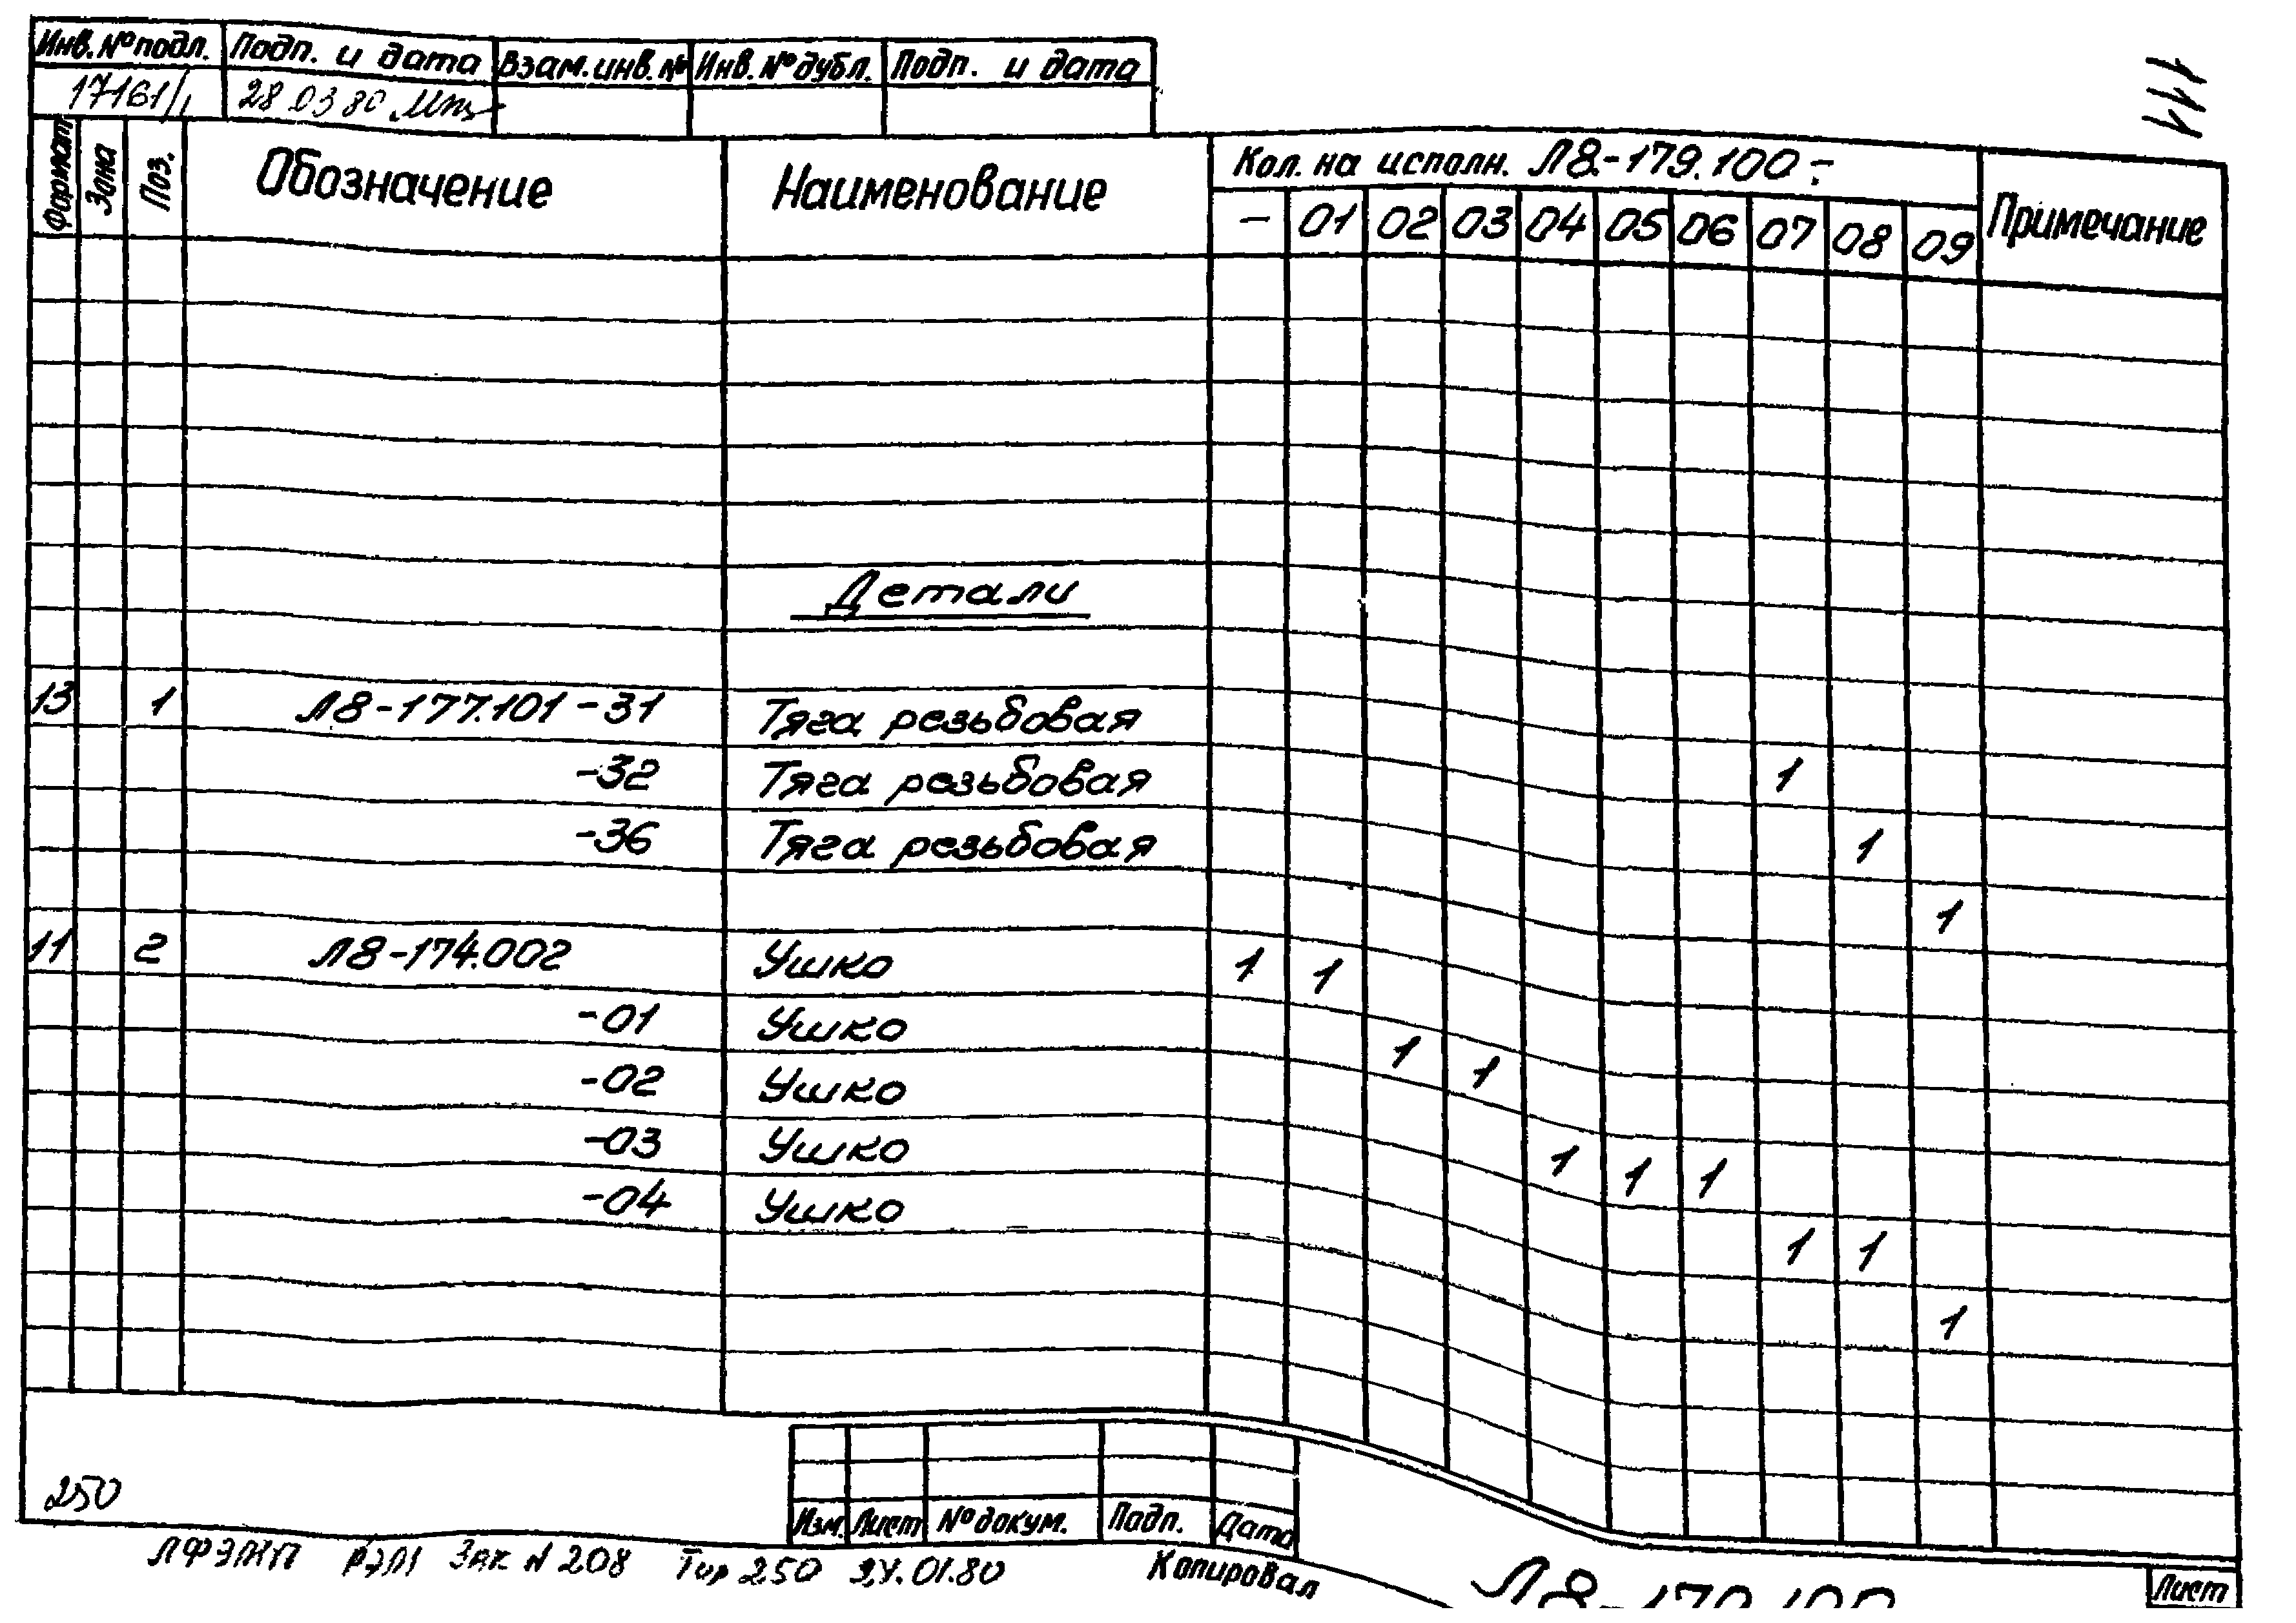 Инв. № подл. Подп. и дата Взам. инв. № Инв. № дубл. Подп. и дата
17161/1 28 03 80
111
Формат Зона Поз. Обозначение Наименование Кол. на исполн. Л8-179.100-: Примечание
– 01 02 03 04 05 06 07 08 09
Детали
13 1 Л8-177.101 -31 Тяга резьбовая 1
-32 Тяга резьбовая 1
-36 Тяга резьбовая 1
11 2 Л8-174.002 Ушко 1 1
-01 Ушко 1 1
-02 Ушко 1 1 1
-03 Ушко 1 1
-04 Ушко 1
250
Изм. Лист № докум. Подп. Дата
Зак N 208 Тир 250 01.80
Копировал
Л8-179.100
Лист